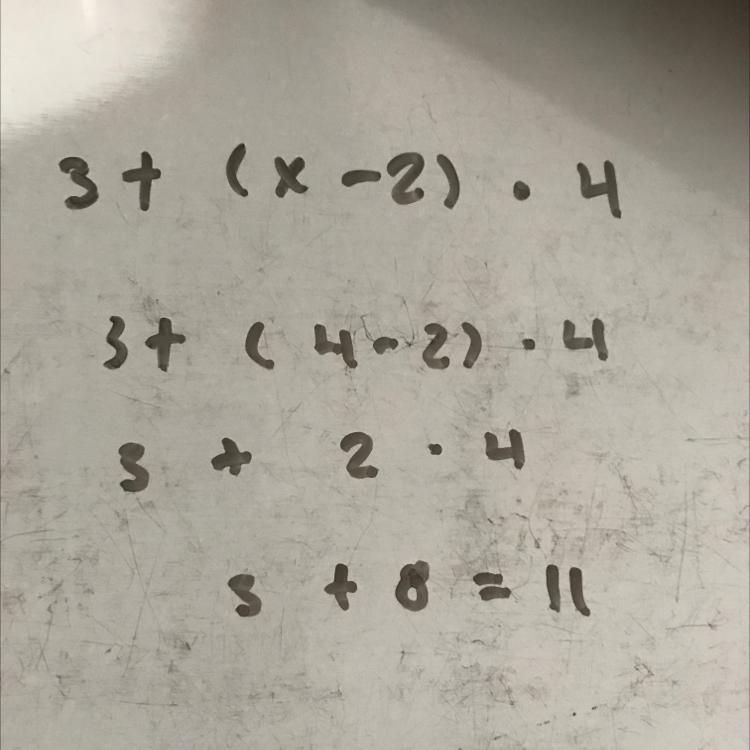 3 + (x - 2) · 4
3 + (4 - 2) · 4
3 + 2 · 4
3 + 8 = 11